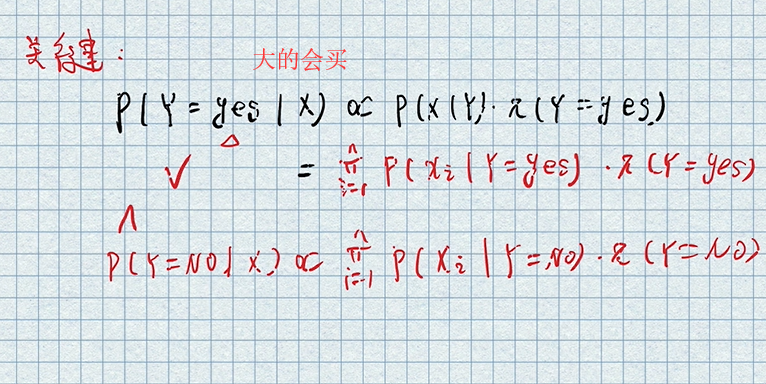 关键:
大的会买
P(Y = yes | X) ∝ P(X|Y)·π(Y=yes)
△
√ = ∏ᵢ₌₁ⁿ P(xᵢ | Y=yes)·π(Y=yes)
∧
P(Y=NO | X) ∝ ∏ᵢ₌₁ⁿ P(Xᵢ | Y=NO)·π(Y=NO)